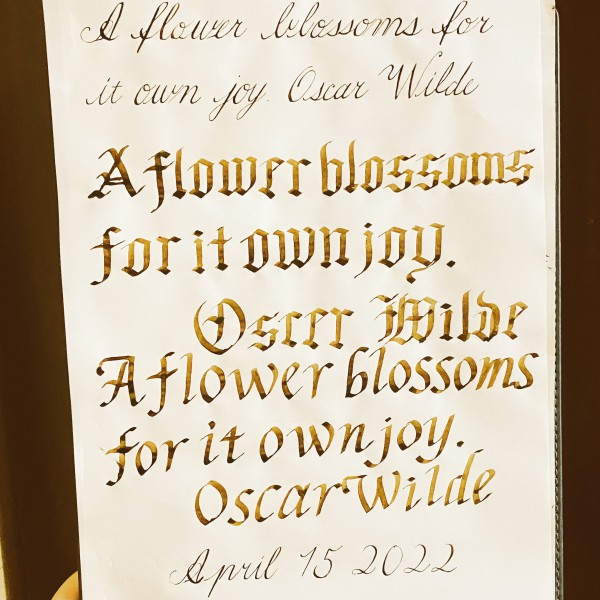 A flower blossoms for
it own joy. Oscar Wilde
A flower blossoms
for it own joy.
Oscer Wilde
A flower blossoms
for it own joy.
Oscar Wilde
April 15 2022